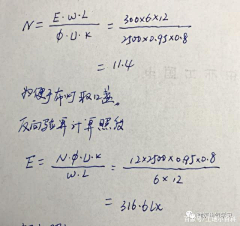 N = E·W·L / Φ·U·K = 300×6×12 / 2500×0.95×0.8
= 11.4
取12盏。
反向验算计算照度
E = N·Φ·U·K / W·L = 12×2500×0.95×0.8 / 6×12
= 316.6Lx